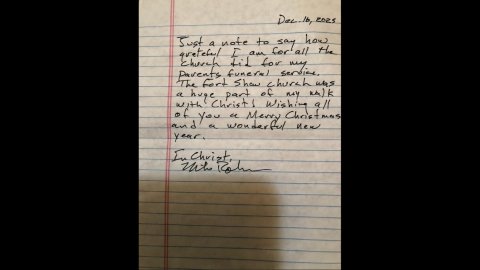 Dec. 16, 2025
Just a note to say how
grateful I am for all the
church did for my
parents funeral service.
The Fort Shaw church was
a huge part of my walk
with Christ! Wishing all
of you a Merry Christmas
and a wonderful new
year.
In Christ,